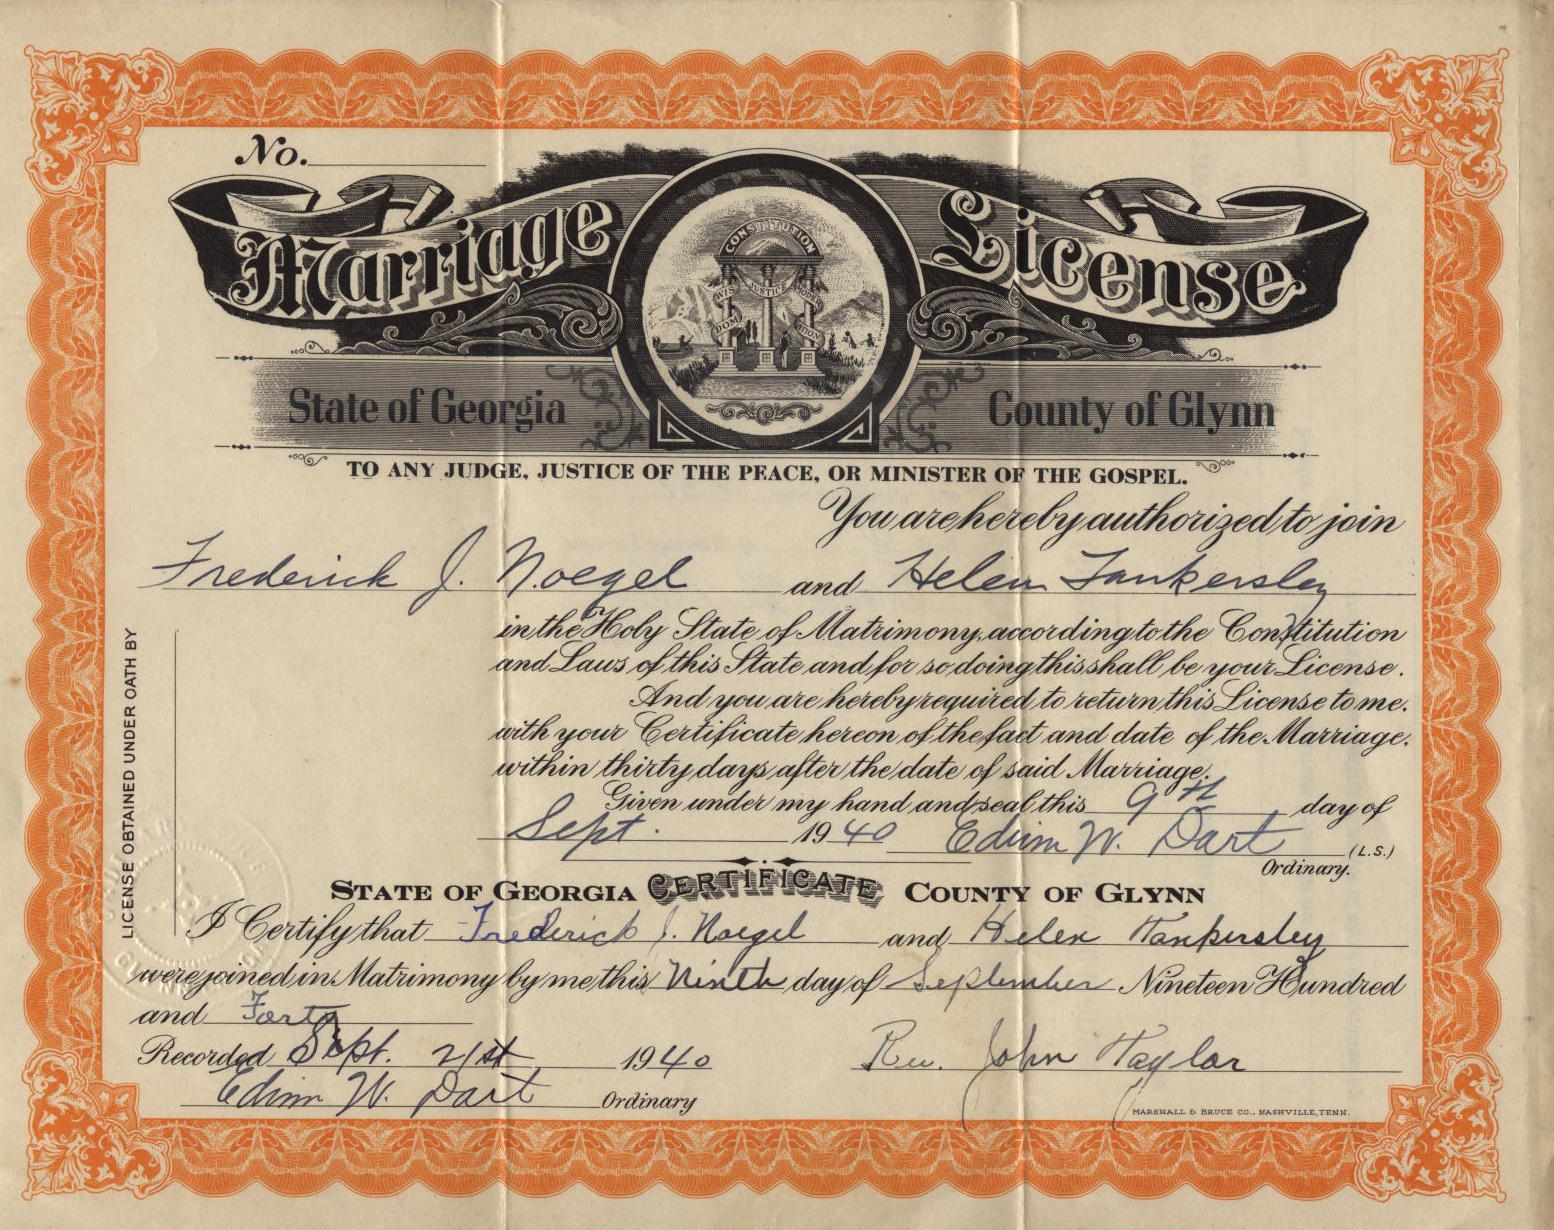 No.
Marriage License
CONSTITUTION
WIS JUSTICE
State of Georgia County of Glynn
TO ANY JUDGE, JUSTICE OF THE PEACE, OR MINISTER OF THE GOSPEL.
You are hereby authorized to join
Frederick J. Noegel and Helen Tankersley
in the Holy State of Matrimony, according to the Constitution
and Laws of this State and for so doing this shall be your License.
And you are hereby required to return this License to me,
with your Certificate hereon of the fact and date of the Marriage,
within thirty days after the date of said Marriage.
Given under my hand and seal this 9th day of
Sept. 1940 Edwin W. Dart (L.S.)
Ordinary.
LICENSE OBTAINED UNDER OATH BY
STATE OF GEORGIA CERTIFICATE COUNTY OF GLYNN
I Certify that Frederick J. Noegel and Helen Tankersley
were joined in Matrimony by me this Ninth day of September Nineteen Hundred
and Forty
Recorded Sept. 21st 1940 Rev. John Taylor
Edwin W. Dart Ordinary
MARSHALL & BRUCE CO., NASHVILLE, TENN.